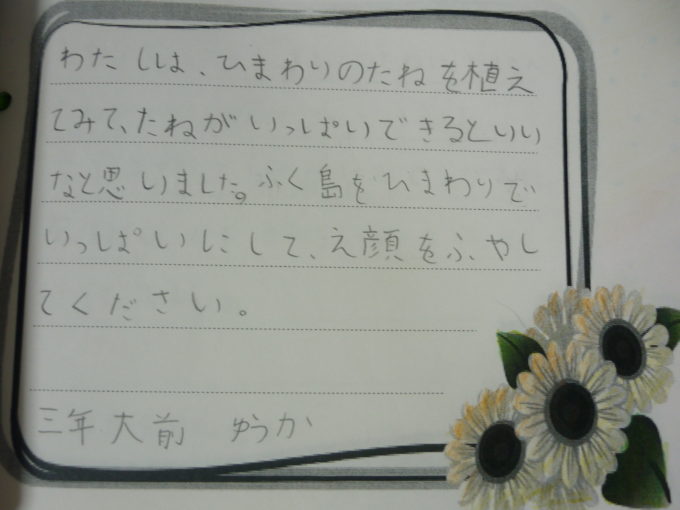 わたしは、ひまわりのたねを植え
てみて、たねがいっぱいできるといい
なと思いました。ふく島をひまわりで
いっぱいにして、え顔をふやし
てください。
三年 大前 ゆうか